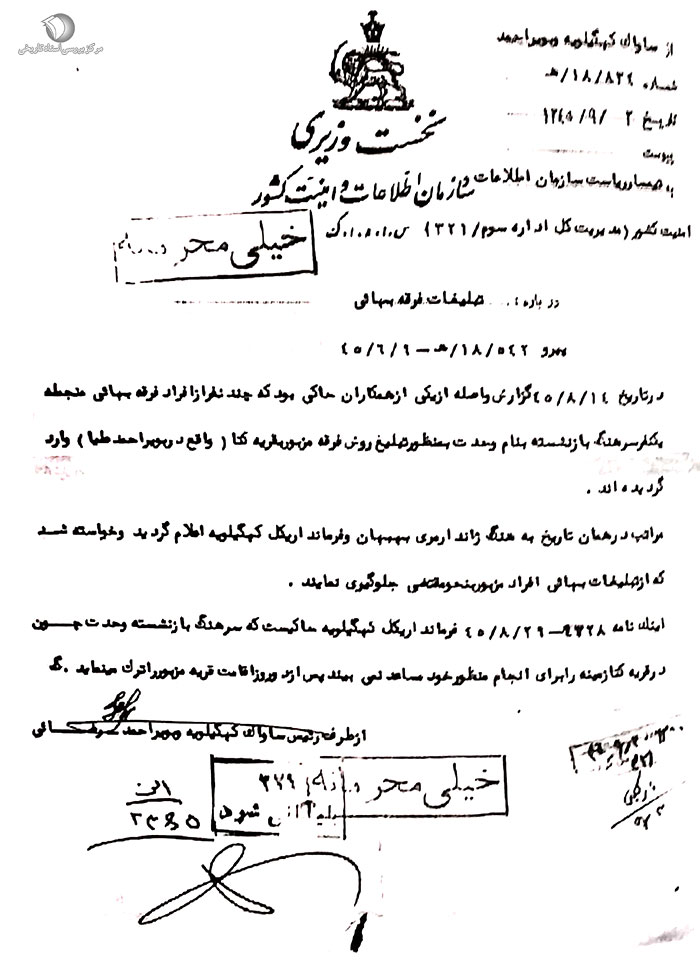 مرکز بررسی اسناد تاریخی
از ساواک کهگیلویه وبویراحمد
شماره ۱۸/۸۲۴/هـ
تاریخ ۲ /۹/ ۱۳۴۵
پیوست
نخست وزیری
سازمان اطلاعات و امنیت کشور
ریاست سازمان اطلاعات و
امنیت کشور (مدیریت کل اداره سوم/ ۳۲۱) س.ا.و.ا.ک
خیلی محرمانه
درباره : تبلیغات فرقه بهائی
پیرو ۱۸/۵۴۲/هـ – ۴۵/۶/۹
درتاریخ ۴۵/۸/۱۴ گزارش واصله ازیکی ازهمکاران حاکی بود که چند نفرازافراد فرقه بهائی منجمله
یکنفرسرهنگ بازنشسته بنام وحدت بمنظورتبلیغ روش فرقه مزبوربقریه کتا ( واقع دربویراحمد علیا ) وارد
گردیده اند .
مراتب درهمان تاریخ به هنگ ژاندارمری بهبهان وفرماندارِیکل کهگیلویه اعلام گردید وخواسته شد
که ازتبلیغات بهائی افراد مزبوربنحومقتضی جلوگیری نمایند .
اینک نامه ۹۳۲۸–۴۵/۸/۲۹ فرماندارِیکل کهگیلویه حاکیست که سرهنگ بازنشسته وحدت چون
درقریه کتا زمینه رابرای انجام منظورخود مساعد نمی بیند پس ازدوروزاقامت قریه مزبورراترک مینماید . گ
ازطرف رئیس ساواک کهگیلویه وبویراحمد
خیلی محرمانه
۳۷۹
شود